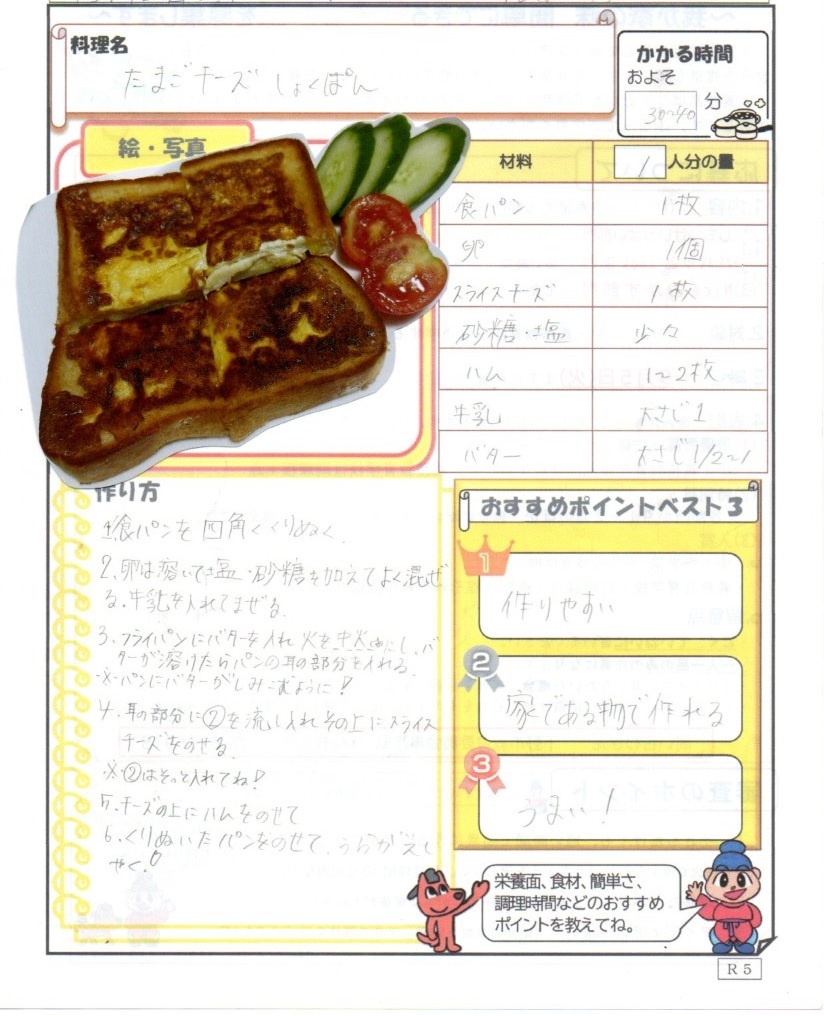 料理名
たまごチーズ しょくぱん
かかる時間
およそ
30~40 分
絵・写真
材料 1 人分の量
食パン 1枚
卵 1個
スライスチーズ 1枚
砂糖・塩 少々
ハム 1~2枚
牛乳 大さじ1
バター 大さじ1/2~1
作り方
1.食パンを四角くくりぬく
2.卵は溶いて塩・砂糖を加えてよく混ぜ
る.牛乳を入れてまぜる.
3.フライパンにバターを入れ火を中火にし、バ
ターが溶けたらパンの耳の部分を入れる
※パンにバターがしみこむように!
4.耳の部分に②を流し入れその上にスライス
チーズをのせる.
※②はそっと入れてね!
5.チーズの上にハムをのせて
6.くりぬいたパンをのせて、うらがえし
やく!
おすすめポイントベスト3
1
作りやすい
2
家である物で作れる
3
うまい!
栄養面、食材、簡単さ、
調理時間などのおすすめ
ポイントを教えてね。
R5